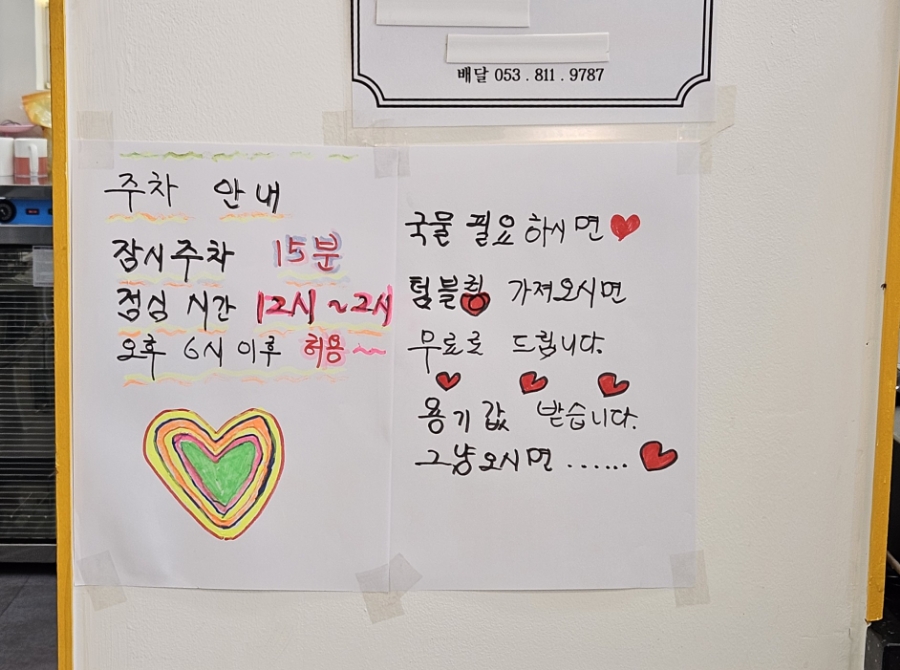 배달 053 . 811 . 9787
주차 안내
잠시주차 15분
점심 시간 12시 ~ 2시
오후 6시 이후 허용 ~
국물 필요하시면
텀블럼 가져오시면
무료로 드립니다.
용기값 받습니다.
그냥오시면 ......